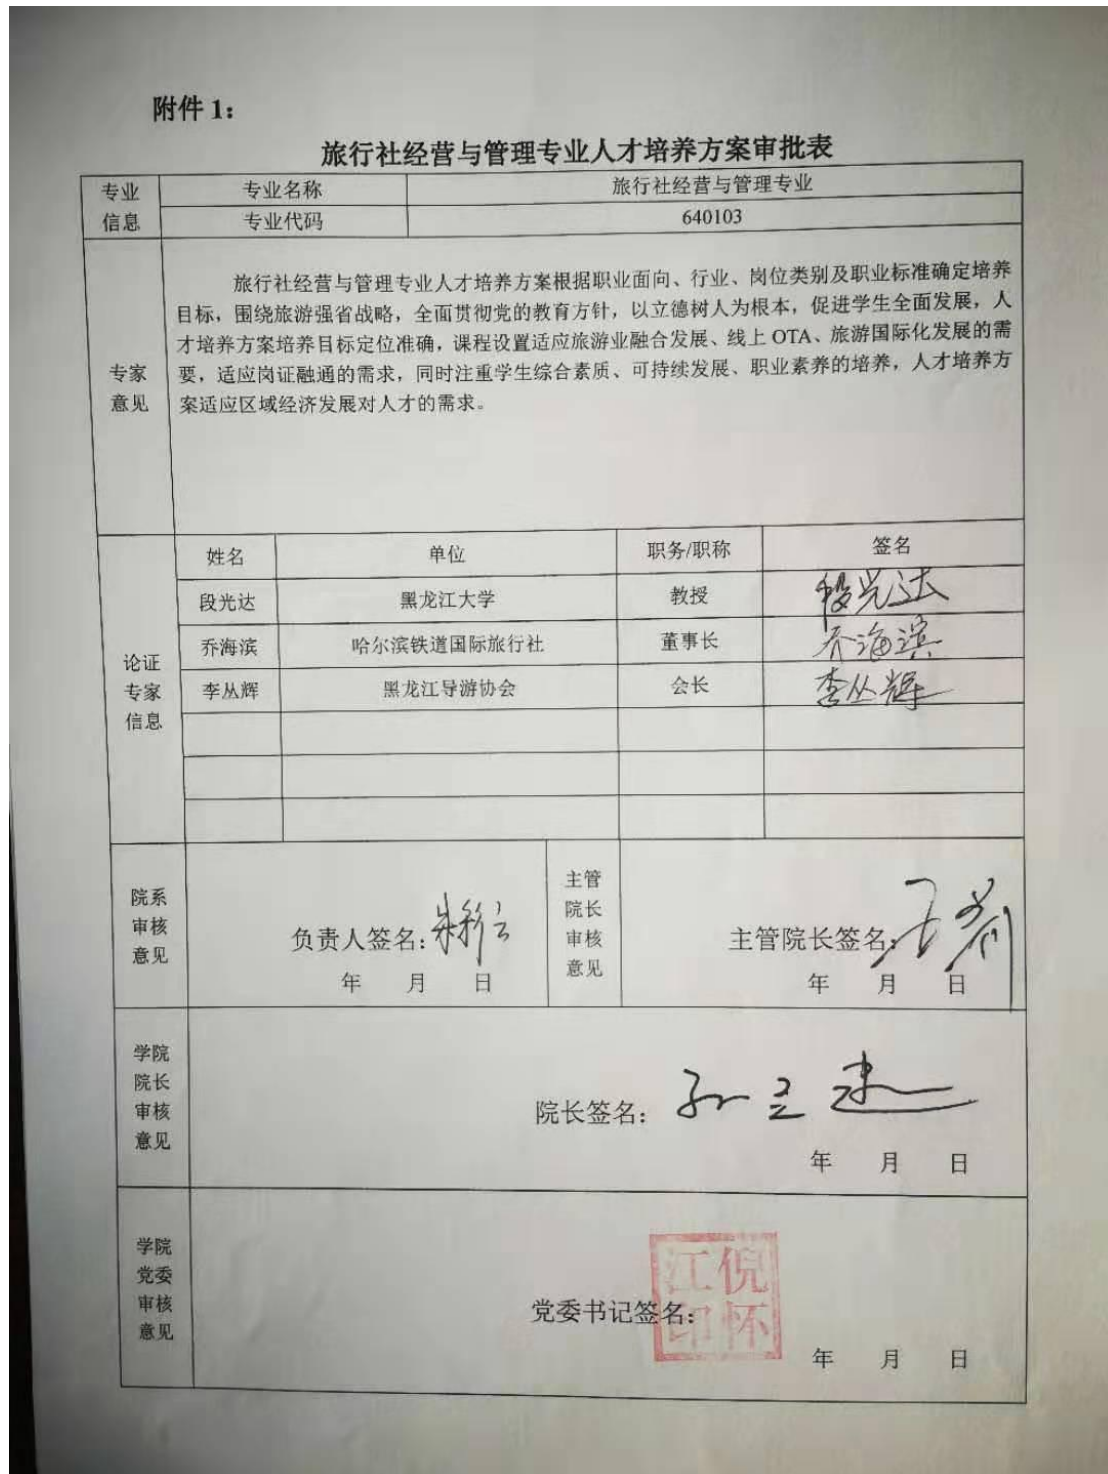 附件 1：
旅行社经营与管理专业人才培养方案审批表
专业信息 专业名称 旅行社经营与管理专业
专业代码 640103
专家意见
旅行社经营与管理专业人才培养方案根据职业面向、行业、岗位类别及职业标准确定培养
目标，围绕旅游强省战略，全面贯彻党的教育方针，以立德树人为根本，促进学生全面发展，人
才培养方案培养目标定位准确，课程设置适应旅游业融合发展、线上 OTA、旅游国际化发展的需
要，适应岗证融通的需求，同时注重学生综合素质、可持续发展、职业素养的培养，人才培养方
案适应区域经济发展对人才的需求。
论证专家信息
姓名 单位 职务/职称 签名
段光达 黑龙江大学 教授 段光达
乔海滨 哈尔滨铁道国际旅行社 董事长 乔海滨
李丛辉 黑龙江导游协会 会长 李丛辉
院系审核意见
负责人签名：
年 月 日
主管院长审核意见
主管院长签名：
年 月 日
学院院长审核意见
院长签名：
年 月 日
学院党委审核意见
党委书记签名：
倪怀江印
年 月 日